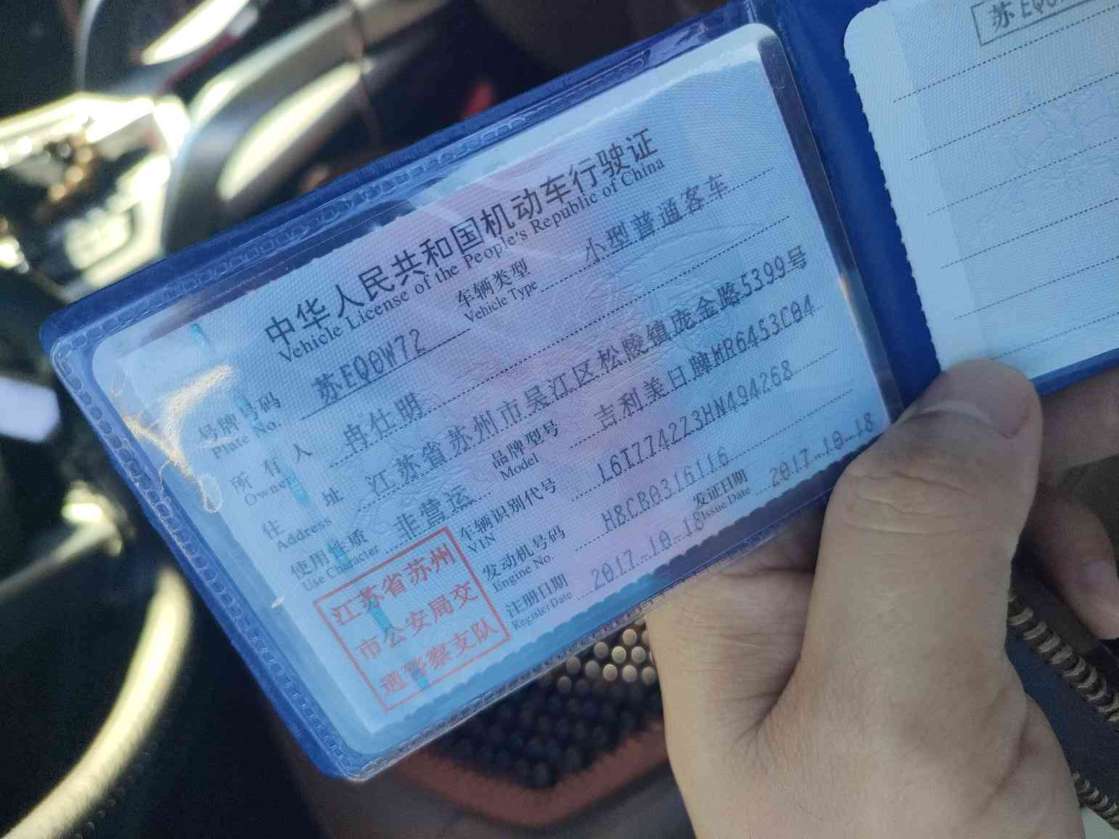 中华人民共和国机动车行驶证
Vehicle License of the People's Republic of China
号牌号码 苏EQ0W72 车辆类型 小型普通客车
Plate No. Vehicle Type
所有人 冉仕明
Owner
住址 江苏省苏州市吴江区松陵镇庞金路5399号
Address
使用性质 非营运 品牌型号 吉利美日牌MR6453C04
Use Character Model
车辆识别代号 L6T7742Z3HN494268
VIN
发动机号码 HBCB0316116
Engine No.
注册日期 2017-10-18 发证日期 2017-10-18
Register Date Issue Date
江苏省苏州
市公安局交
通警察支队